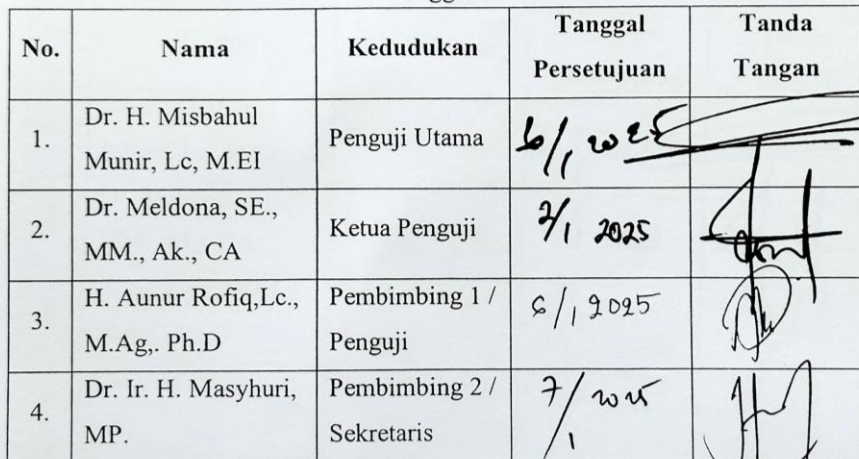 No. Nama Kedudukan Tanggal Persetujuan Tanda Tangan
1. Dr. H. Misbahul Munir, Lc, M.EI Penguji Utama 6/1 2025
2. Dr. Meldona, SE., MM., Ak., CA Ketua Penguji 2/1 2025
3. H. Aunur Rofiq,Lc., M.Ag,. Ph.D Pembimbing 1 / Penguji 6/1 2025
4. Dr. Ir. H. Masyhuri, MP. Pembimbing 2 / Sekretaris 7/1 2025